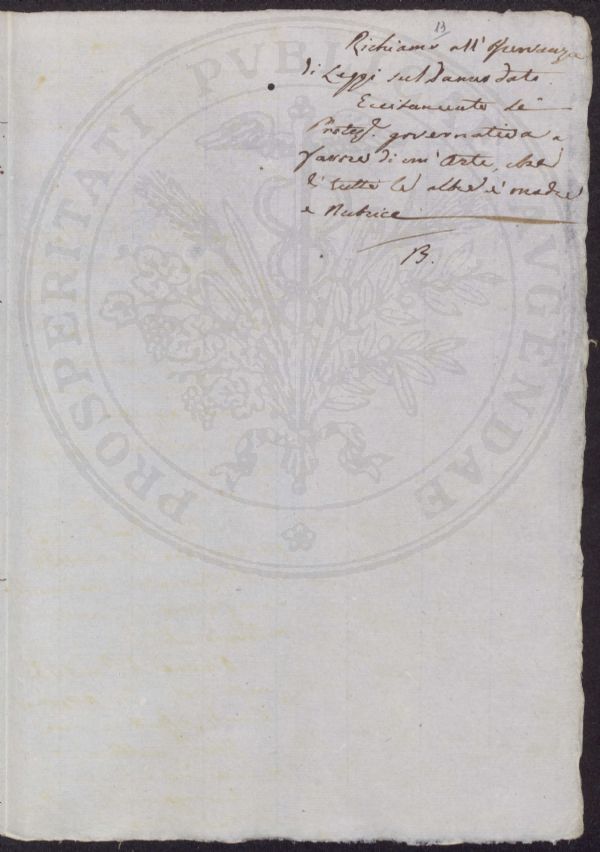 13
Richiamo all'osservanza
di Leggi sul Danno dato.
Eccitamento de
Protez. governativa a
favore di un' Arte, che
di tutte le altre è madre
e Nutrice
B.
PROSPERITATI PVBLICAE AVGENDAE